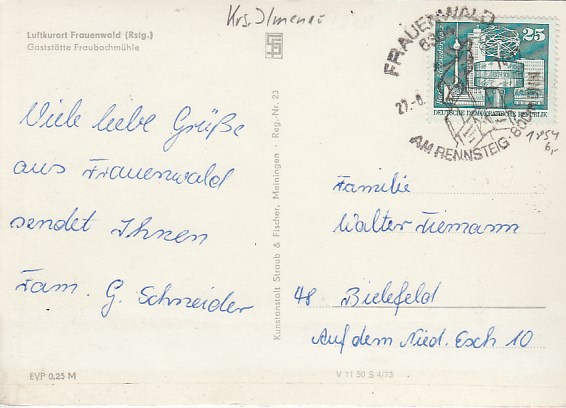 Luftkurort Frauenwald (Rstg.)
Gaststätte Fraubachmühle
Krs. Ilmenau
FRAUENWALD
6304
27.-8.
AM RENNSTEIG · 800m
25
DEUTSCHE DEMOKRATISCHE REPUBLIK
1854
br
Viele liebe Grüße
aus Frauenwald
sendet Ihnen
Fam. G. Schneider
Kunstanstalt Straub & Fischer, Meiningen · Reg.-Nr. 23
Familie
Walter Tiemann
48 Bielefeld
Auf dem Nied. Esch 10
EVP 0,25 M
V 11 50 S 4/73